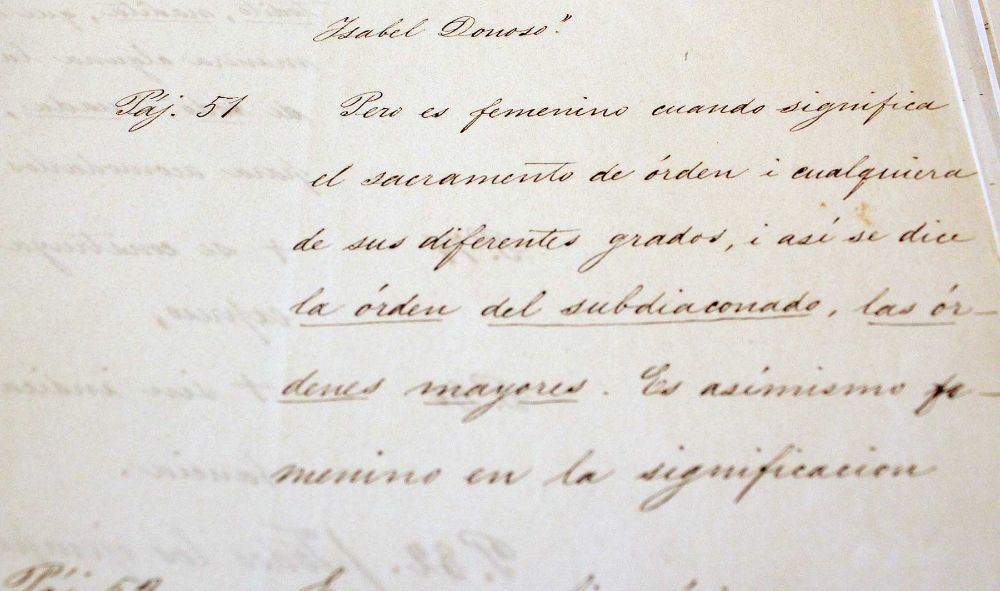 Isabel Donoso."
Páj. 51 Pero es femenino cuando significa
el sacramento de órden i cualquiera
de sus diferentes grados, i así se dice
la órden del subdiaconado, las ór-
denes mayores. Es asimismo fe-
menino en la significacion